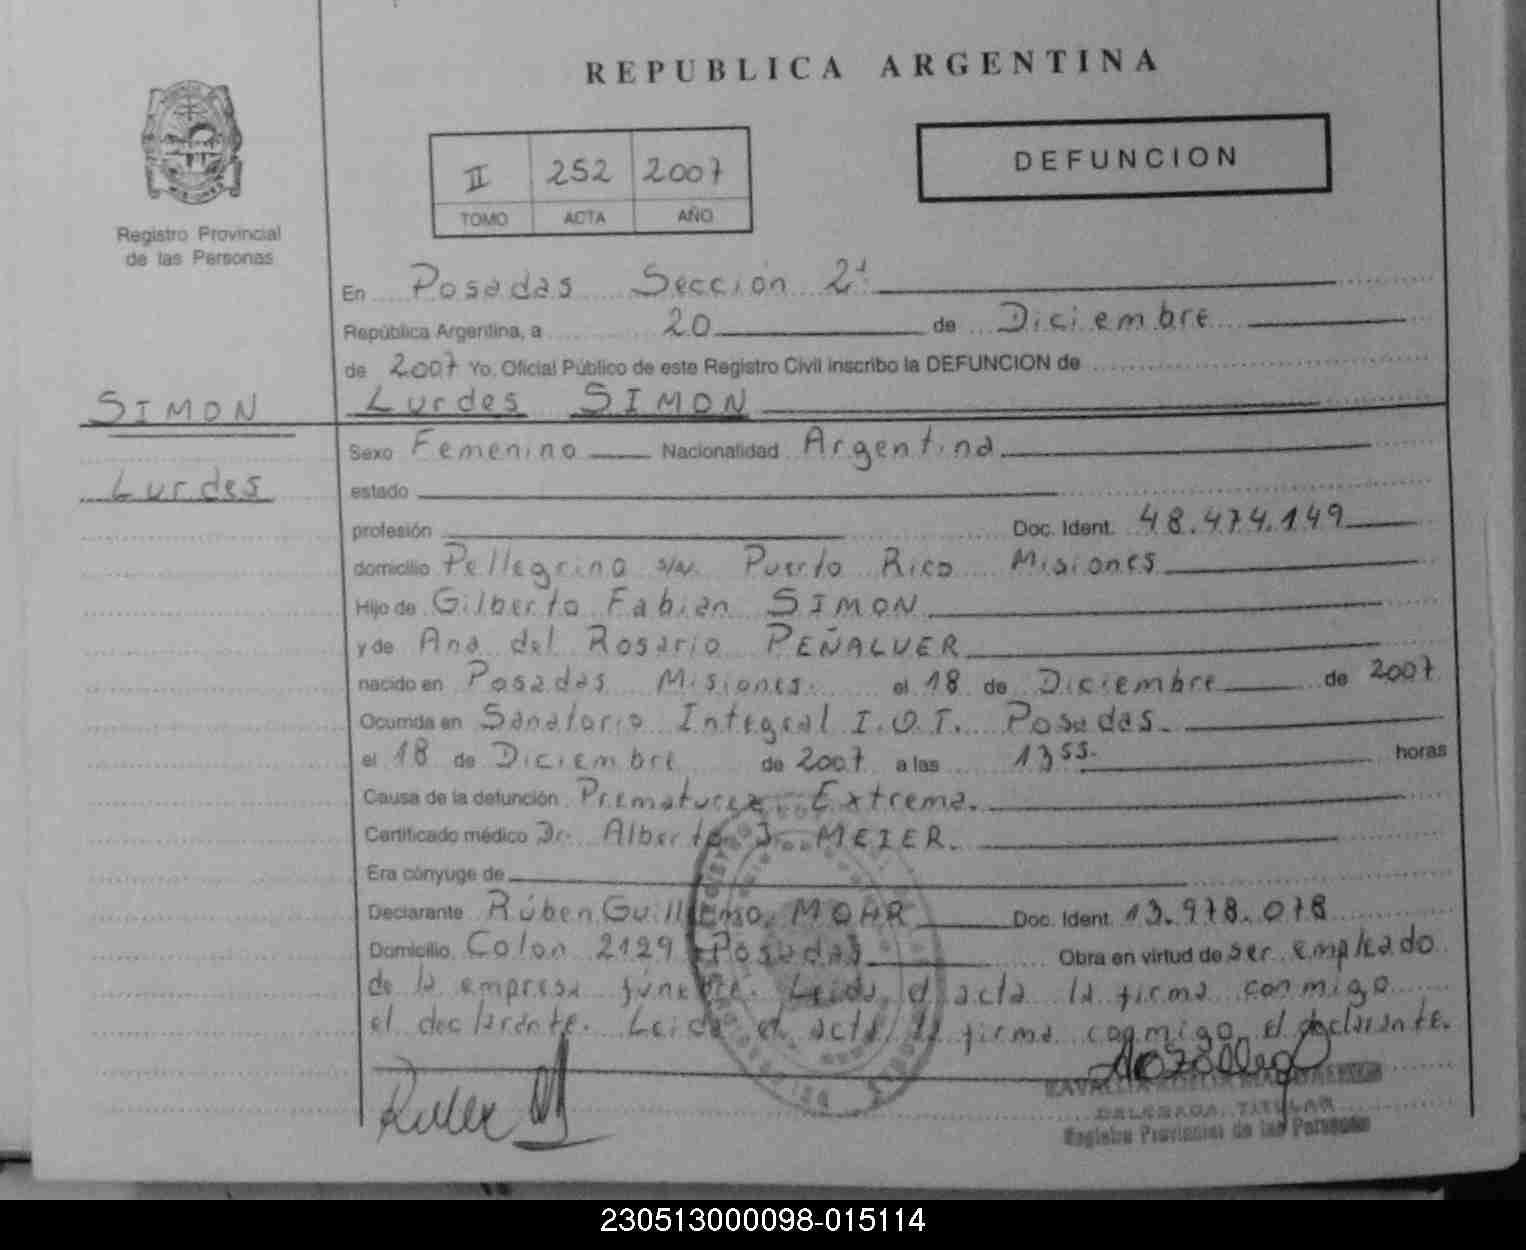 REPUBLICA ARGENTINA
DEFUNCION
II 252 2007
TOMO ACTA AÑO
Registro Provincial
de las Personas
En Posadas Sección 2ª
República Argentina, a 20 de Diciembre
de 2007 Yo, Oficial Público de este Registro Civil inscribo la DEFUNCION de
SIMON
Lurdes
Lurdes SIMON
Sexo Femenino Nacionalidad Argentina
estado
profesión Doc. Ident. 48.474.149
domicilio Pellegrino s/n. Puerto Rico Misiones
Hijo de Gilberto Fabian SIMON
y de Ana del Rosario PEÑALVER
nacido en Posadas Misiones. el 18 de Diciembre de 2007
Ocurrida en Sanatorio Integral I.O.T. Posadas.
el 18 de Diciembre de 2007 a las 13 55. horas
Causa de la defunción Prematurez Extrema.
Certificado médico Dr. Alberto J. MEIER.
Era cónyuge de
Declarante Rúben Guillermo MOHR Doc. Ident. 13.978.078
Domicilio Colon 2129 Posadas Obra en virtud de ser empleado
de la empresa funebre. Leida el acta la firma conmigo
el declarante. Leida el acta la firma conmigo el declarante.
DELEGADA TITULAR
Registro Provincial de las Personas
230513000098-015114